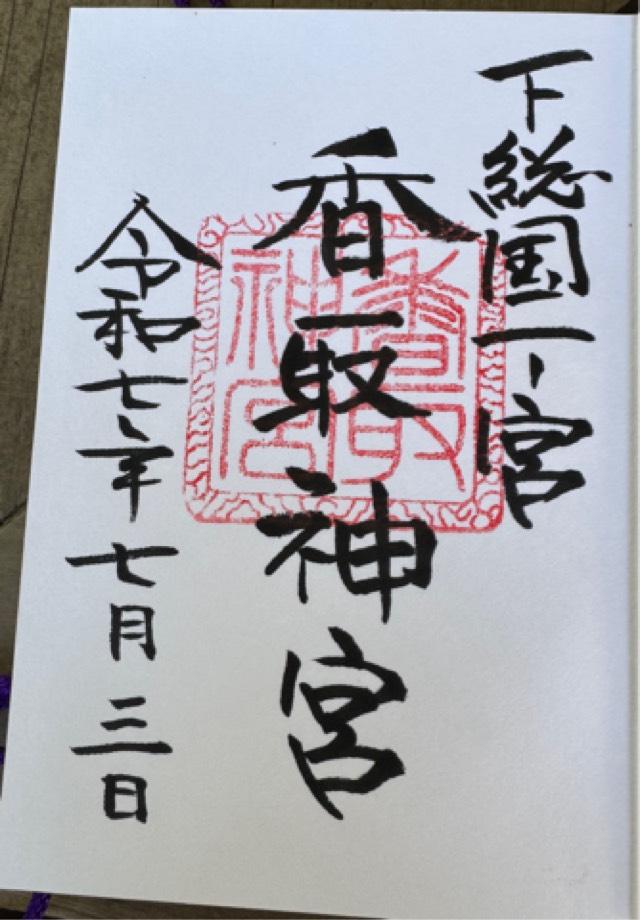 下総国一ノ宮
香取神宮
香取神宮
令和七年七月三日